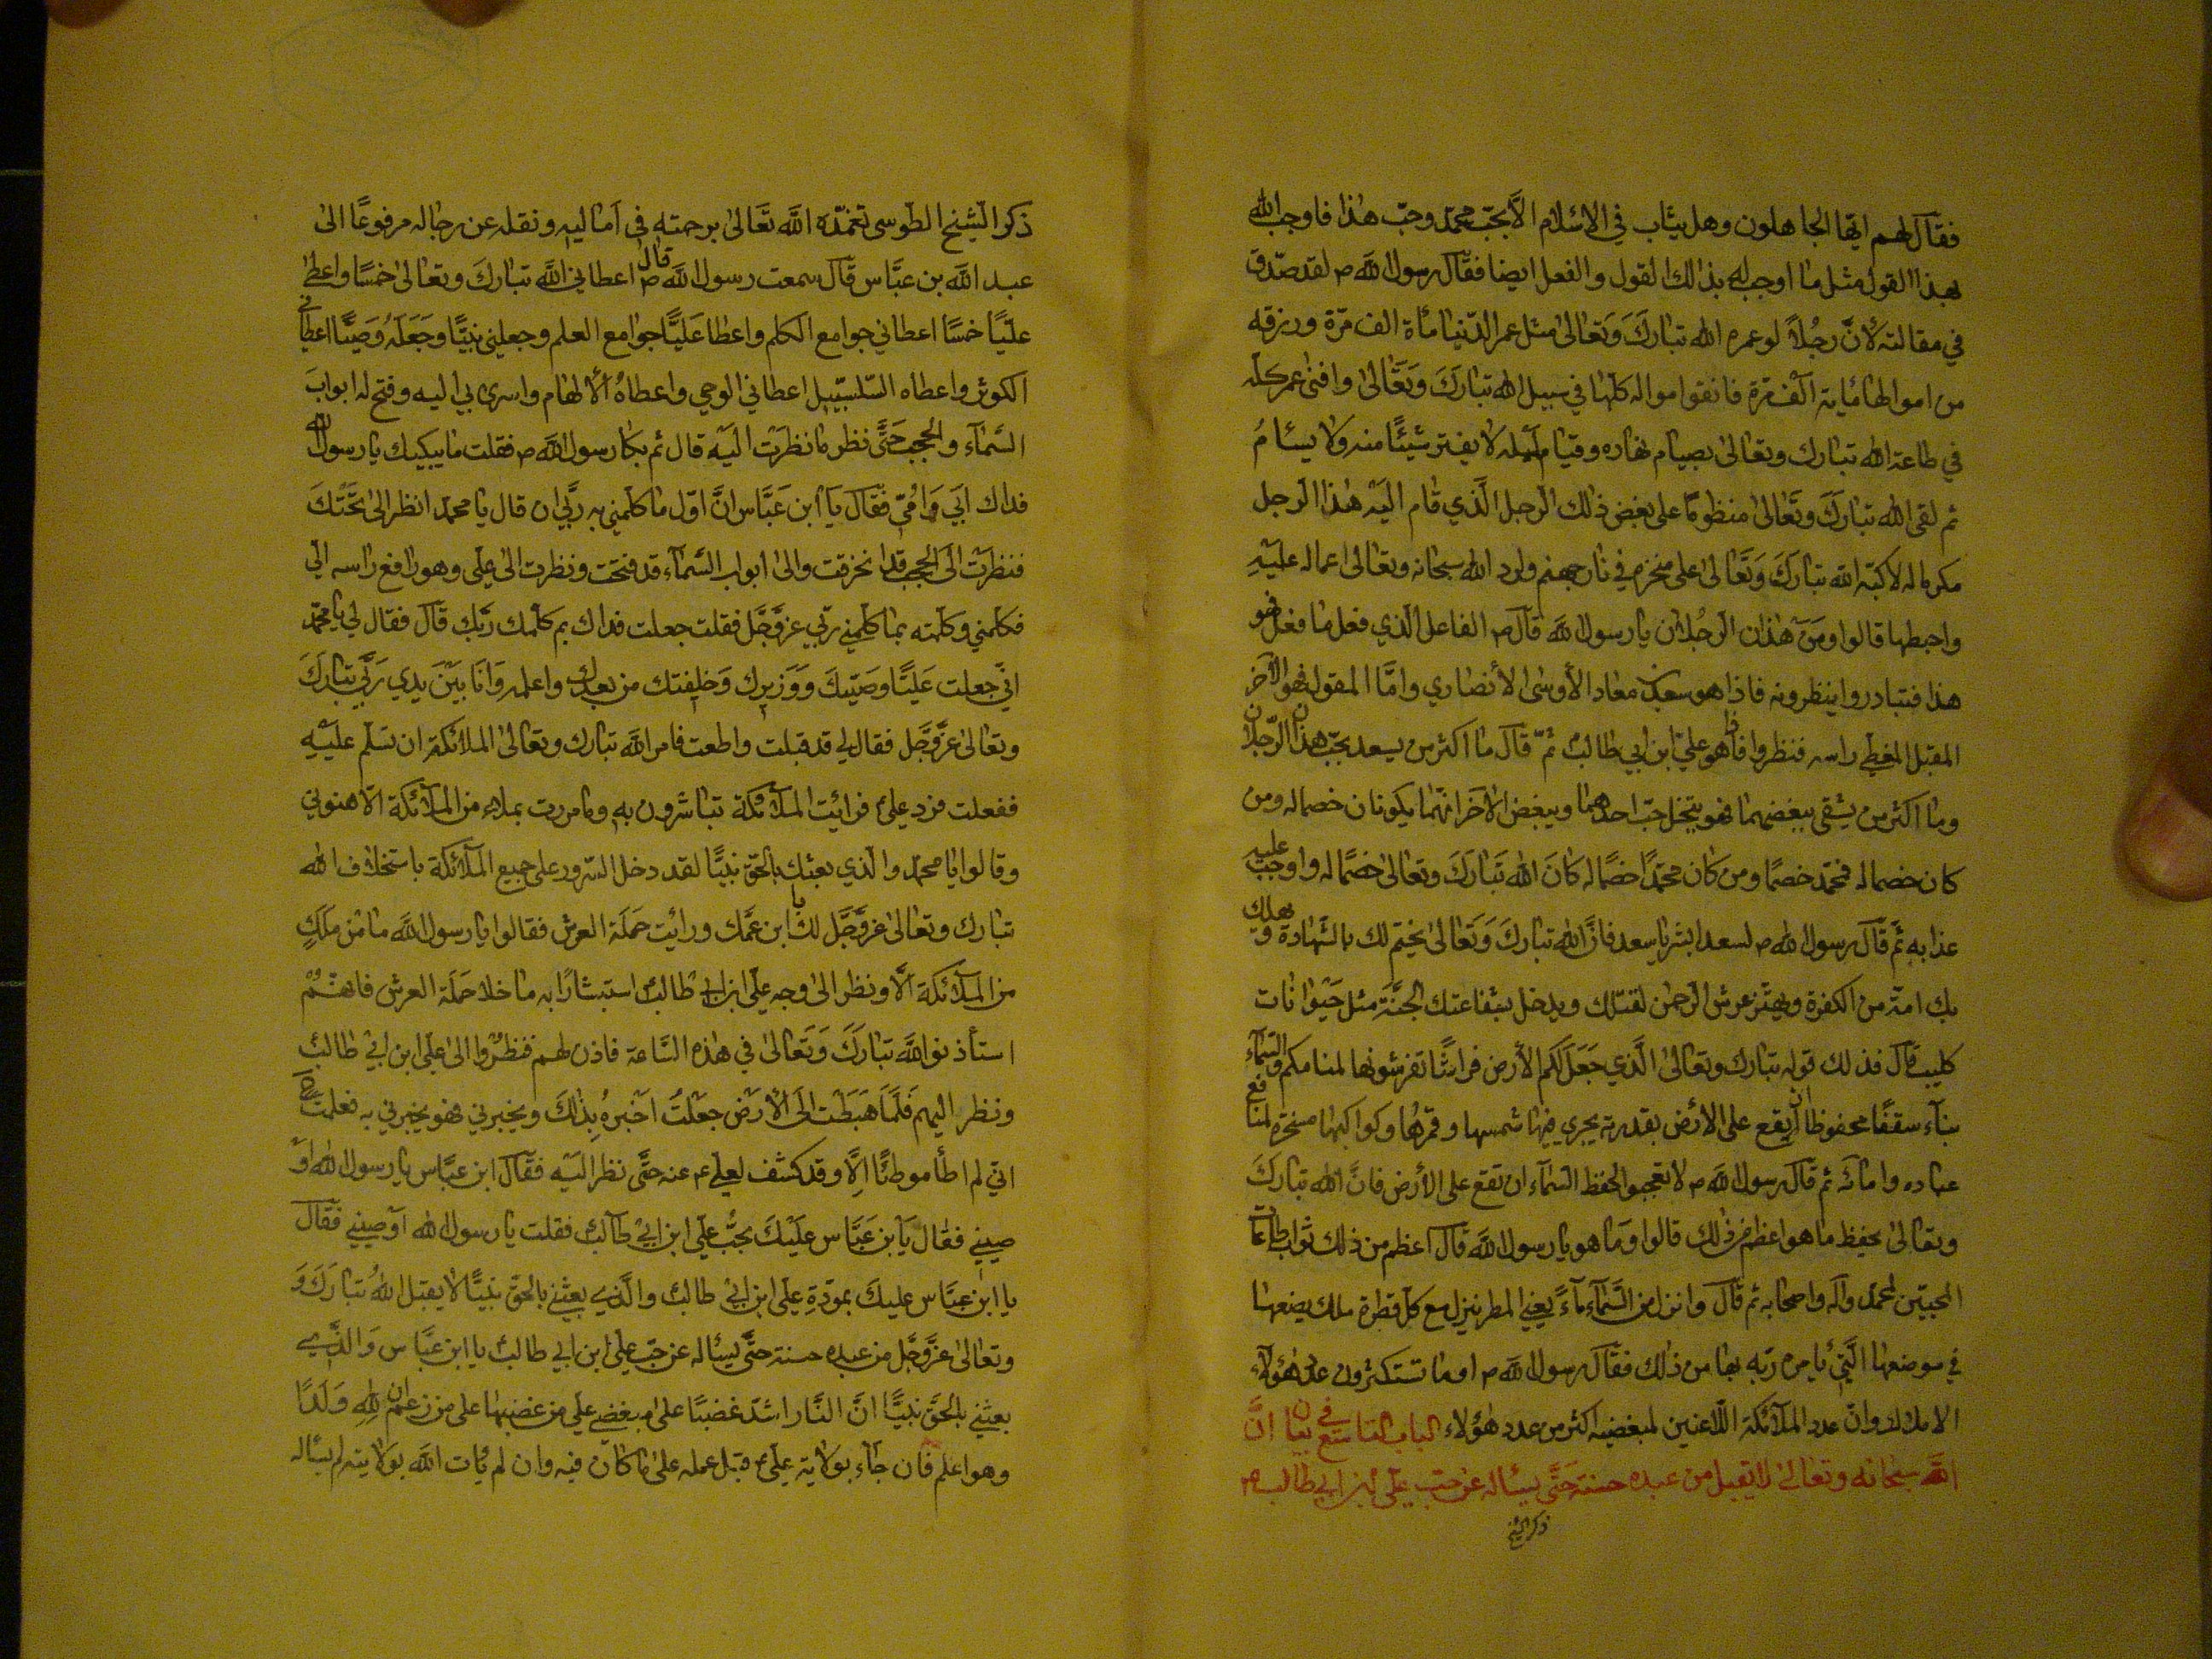 فقال لهم ايّها الجاهلون وهل يثاب في الاسلام الّا بحبّ محمّد وحبّ هذا فاوجب الله
بهذا القول مثل ما اوجب له بذالك القول والفعل ايضا فقال رسول الله ص لقد صدق
في مقالته لأنّ رجُلاً لو عمره الله تبارَكَ وَتَعالىٰ مثل عمر الدّنيا مأة الف مّرة ورزقه
من اموالها مٔاية الف مّرة فانفق امواله كلّها في سبيل الله تبارَكَ وَتَعالىٰ وافنىٰ عمر كلّه
في طاعة الله تبارك وتعالىٰ بصيام نهاره وقيام ليله لا يفتر شيئًا منه ولا يسئامُ
ثم لقى الله تبارَكَ وتَعالىٰ منظومًا علىٰ بغض ذٰلك الرجل الّذي قام اليَه هٰذا الرجل
مكرماله لاكبّه الله تبارَكَ وَتَعالىٰ علىٰ منخره في نار جهنم ولرد الله سبحانه وتعالىٰ اعماله عليْهِ
واحبطها قالوا ومَنْ هٰذان الرجُلان يا رسول الله قال ص الفاعل الّذي فعل ما فعل فهو
هذا فتبادروا ينظرونه فاذا هو سعد بن معاد الأوسىٰ الأنصاري وامّا المقول فهو الآخر
المقبل المغطي راسه فنظروا فاذا هو عليّ ابن ابي طالبٔ ثمّ قال ما اكثر من يسعد بحبّ هذان الرّجلان
وما اكثر من يشقى ببغضهما فهو ينتحل حبّ احدهما ويبغض الاٰخر انّهما يكونان خصماله ومن
كان خصماله فمحمّد خصمًا ومن كان محمّدًا خصمًاله كانَ الله تَبارَكَ وتعالىٰ خصمًا له واوجب عليه
عذابه ثم قال رسول الله ص لسعد ابشر يا سعد فانّ الله تبارك وَتَعالىٰ يختم لك بالشّهادة ويهلك
بك امّة من الكفرة ويهتّز عرش الرحمٰن لقتلك ويدخل بشفاعتك الجنّة مثل حَيْوانات
كليب قال فذلك قوله تبارك وتعالىٰ الَّذي جَعَلَ لكم الأرض فراشًا تفرشونها لمنامكم والسّماء
بناء سقفًا محفوظا ان يقع على الارض بقدرته يجري فيها شمسها وقمرها وكواكبها مسخرة لمنافع
عباده وامائه ثم قال رسول الله ص لا تعجبوا لحفظ السّماء ان تقع على الأرض فانّ الله تبارَكَ
وتعالىٰ يحفظ ما هو اعظم من ذٰلك قالوا وما هو يا رسول الله قال اعظم من ذلك ثواب طاعات
المحبّين لمحمّد وآله واصحابه ثم قال وانزل من السّماء مآءً يعني المطر ينزل مع كلّ قطرة ملك يضعها
في موضعها الّتي يأمره ربّه بها من ذلك فقال رسول الله ص او ما تستكثرون عدد هٰؤلاء
الاملاك وانّ عدد الملائكة اللّاعنين لمبغضيه اكثر من عدد هٰؤلاء الباب التاسع في بيان انّ
الله سبحانه وتعالىٰ لا يقبل من عبده حسنة حَتّى يسئاله عن حبّ علي ابن ابي طالب ع
ذكر الشيخ
ذكر الشيخ الطوسى تغمّده الله تَعالىٰ برحمته فى اماليه ونقله عن رجاله مرفوعًا الىٰ
عبد الله بن عبّاس قال سمعت رسول الله ص قال اعطاني الله تبارَكَ وتعالىٰ خمسًا واعطىٰ
عليّا خمسًا اعطاني جوامع الكلم واعطا عَليّا جوامع العلم وجعلني نبيًّا وجَعَلَهُ وَصيًّا اعطاني
الكوثر واعطاه السّلسبيل اعطاني الوحي واعطاهُ الألهام واسرى بي اليه وفتح له ابوابَ
السّماء والحجب حَتّى نظر ما نظرت اليه قال ثم بكا رسول الله ص فقلت ما يبكيك يا رسول الله
فداك ابَي وَامُيّ فقال يا ابن عَبّاس انَّ اوّل ما كلّمني به ربّي ان قال يا محمّد انظر الىٰ تحتَكَ
فنظرت الىَ الحجب قد انخرقت والىٰ ابواب السّماء قد فتحت ونظرت الىٰ علي وهو رافع راسه الي
فكلّمني وكلّمته بما كلّمني ربّي عزّوجّل فقلت جعلت فداك بم كلّمك ربّك قال فقال لي يا محمّد
انّي جعلت عَليًّا وصَيّكَ وَوَزيرك وَخليفتك من بعدك واعلمه وَانَا بيْنَ يدي رَبّي تبارَكَ
وتعالىٰ عزّوجّل فقال لي قد قبلت واطعت فامر الله تبارك وتعالىٰ الملائكة ان تسلّم عليْهِ
ففعلت فرد علي فرأيت الملائكة تباشرون به وما مررت بملاء من الملائكة الّا هنوني
وقالوا يا محمّد والّذي بعثك بالحقّ نبيًّا لقد دخل السّرور على جميع الملائكة باستخلاف الله
تبارك وتعالىٰ عزّوجّل لك يا ابن عمّك ورأيت حَمَلَة العرش فقالوا يا رسول الله ما من مَلَكٍ
من الملائكة الّا ونظر الىٰ وجه علي ابن ابي طالب استبشارًا به ما خلا حَمَلَة العرش فانهُمْ
استأذنوا الله تبارَكَ وَتَعالىٰ في هذه السّاعة فاذن لهم فنظرُوا الىٰ علي ابن ابي طالب
ونظر اليهم فَلَمّا هَبَطْت الىَ الأرض جعَلْتُ اخبرهُ بذلكَ ويخبرني فهو يخبرني به فعلمت
انّي لم اطأ موطئًا الّا وقد كشف لعلي ع عنه حتّى نظر اليَه فقال ابن عبّاس يا رسول الله او
صيني فقال يا بن عَبّاس عليْكَ بحُبّ علي ابن ابي طالب فقلت يا رسول الله اَوصيني فقال
يا ابن عبّاس عليك بموّدةِ علي ابن ابي طالب والّذي بعثني بالحقّ نبيًّا لا يقبل اللهُ تبارَكَ وَ
وتعالىٰ عزّوجّل من عبده حسنة حتّى يسئاله عن حبّ علي ابن ابي طالب يا ابن عبّاس وَالّذي
بعثني بالحقّ نبيًّا انّ النّار اشدّ غضبًا علىٰ مبغضي علي من غضبها على من زعم انّ لله وَلَدًا
وهو اعلم فان جاء بولاية علي ع قبل عمله علىٰ ما كان فيه وان لم يأت الله بولايته لم يسئاله